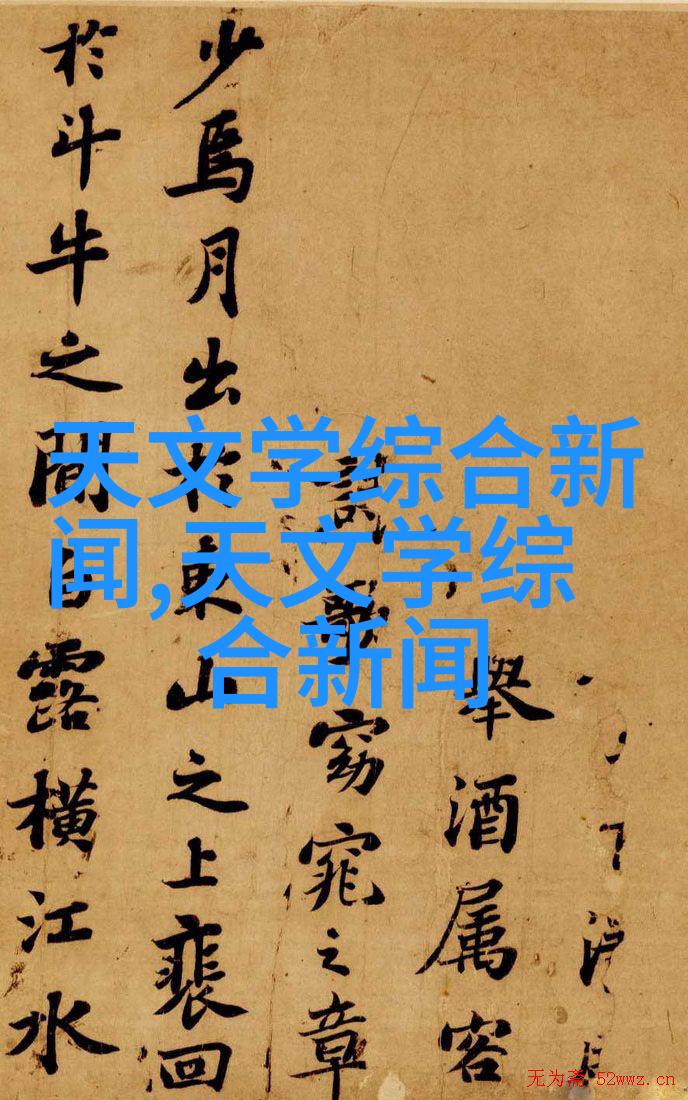 舉酒属客
窈窕之章
少焉月出於東山之上裴回
於斗牛之間白露橫江水
天文学综合新
闻,天文学综
合新闻
无为斋 52wwz.cn